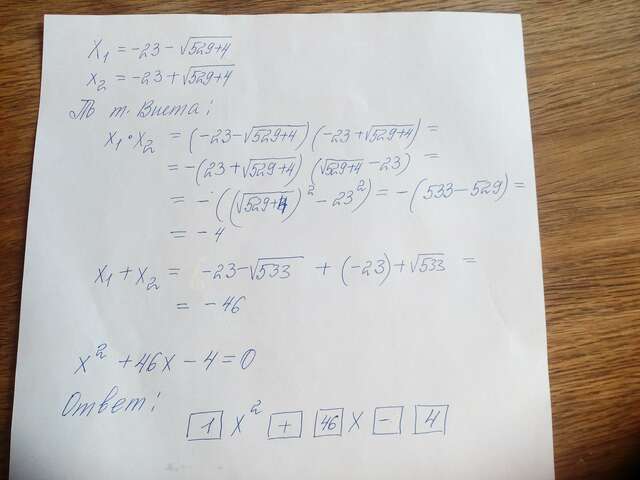 x₁ = -23 - √529+4
x₂ = -23 + √529+4
По т. Виета:
x₁ • x₂ = (-23-√529+4) (-23+√529+4) =
= -(23+√529+4) (√529+4 -23) =
= -((√529+4)² - 23²) = -(533-529) =
= -4
x₁ + x₂ = -23-√533 + (-23)+√533 =
= -46
x² + 46x - 4 = 0
Ответ:
1 x² + 46 x - 4